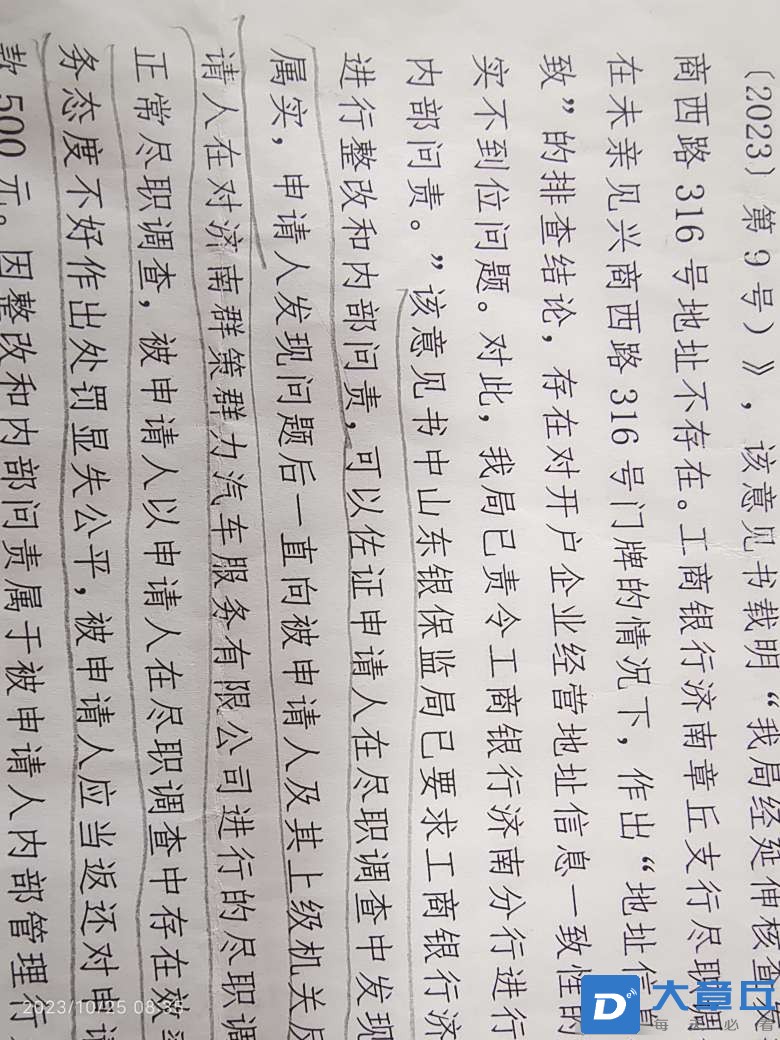 〔2023〕第9号）》，该意见书载明“我局经延伸核查发
商西路316号地址不存在。工商银行济南章丘支行尽职调
在未亲见兴商西路316号门牌的情况下，作出“地址信息
致”的排查结论，存在对开户企业经营地址信息一致性的
实不到位问题。对此，我局已责令工商银行济南分行进行
内部问责。”该意见书中山东银保监局已要求工商银行济
进行整改和内部问责，可以佐证申请人在尽职调查中发现
属实，申请人发现问题后一直向被申请人及其上级机关反
请人在对济南群策群力汽车服务有限公司进行的尽职调
正常尽职调查，被申请人以申请人在尽职调查中存在效率
务态度不好作出处罚显失公平，被申请人应当返还对申请
款500元。因整改和内部问责属于被申请人内部管理行
2023/10/25 08:35
D
大章丘
每天必看